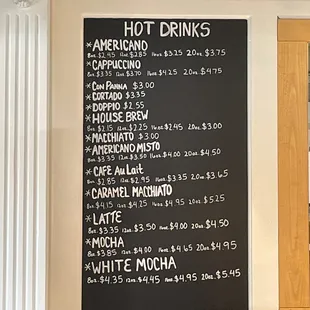 HOT DRINKS
*AMERICANO
8oz. $2.45 12oz. $2.85 16oz. $3.25 20oz. $3.75
*CAPPUCCINO
8oz. $3.35 12oz. $3.70 16oz. $4.25 20oz. $4.75
*CON PANNA $3.00
*CORTADO $3.35
*DOPPIO $2.55
*HOUSE BREW
8oz. $2.15 12oz. $2.25 16oz. $2.45 20oz. $3.00
*MACCHIATO $3.00
*AMERICANO MISTO
8oz. $3.35 12oz. $3.50 16oz. $4.00 20oz. $4.50
*CAFÉ Au Lait
8oz. $2.85 12oz. $2.95 16oz. $3.35 20oz. $3.65
*CARAMEL MACCHIATO
8oz. $4.15 12oz. $4.25 16oz. $4.95 20oz. $5.25
*LATTE
8oz. $3.35 12oz. $3.50 16oz. $4.00 20oz. $4.50
*MOCHA
8oz. $3.85 12oz. $4.00 16oz. $4.65 20oz. $4.95
*WHITE MOCHA
8oz. $4.35 12oz. $4.45 16oz. $4.95 20oz. $5.45